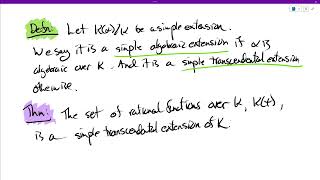 Defn: Let K(α)/K be a simple extension.
We say it is a simple algebraic extension if α is
algebraic over K. And it is a simple transcendental extension
otherwise.
Thm: The set of rational functions over K, K(t),
is a simple transcendental extension of K.